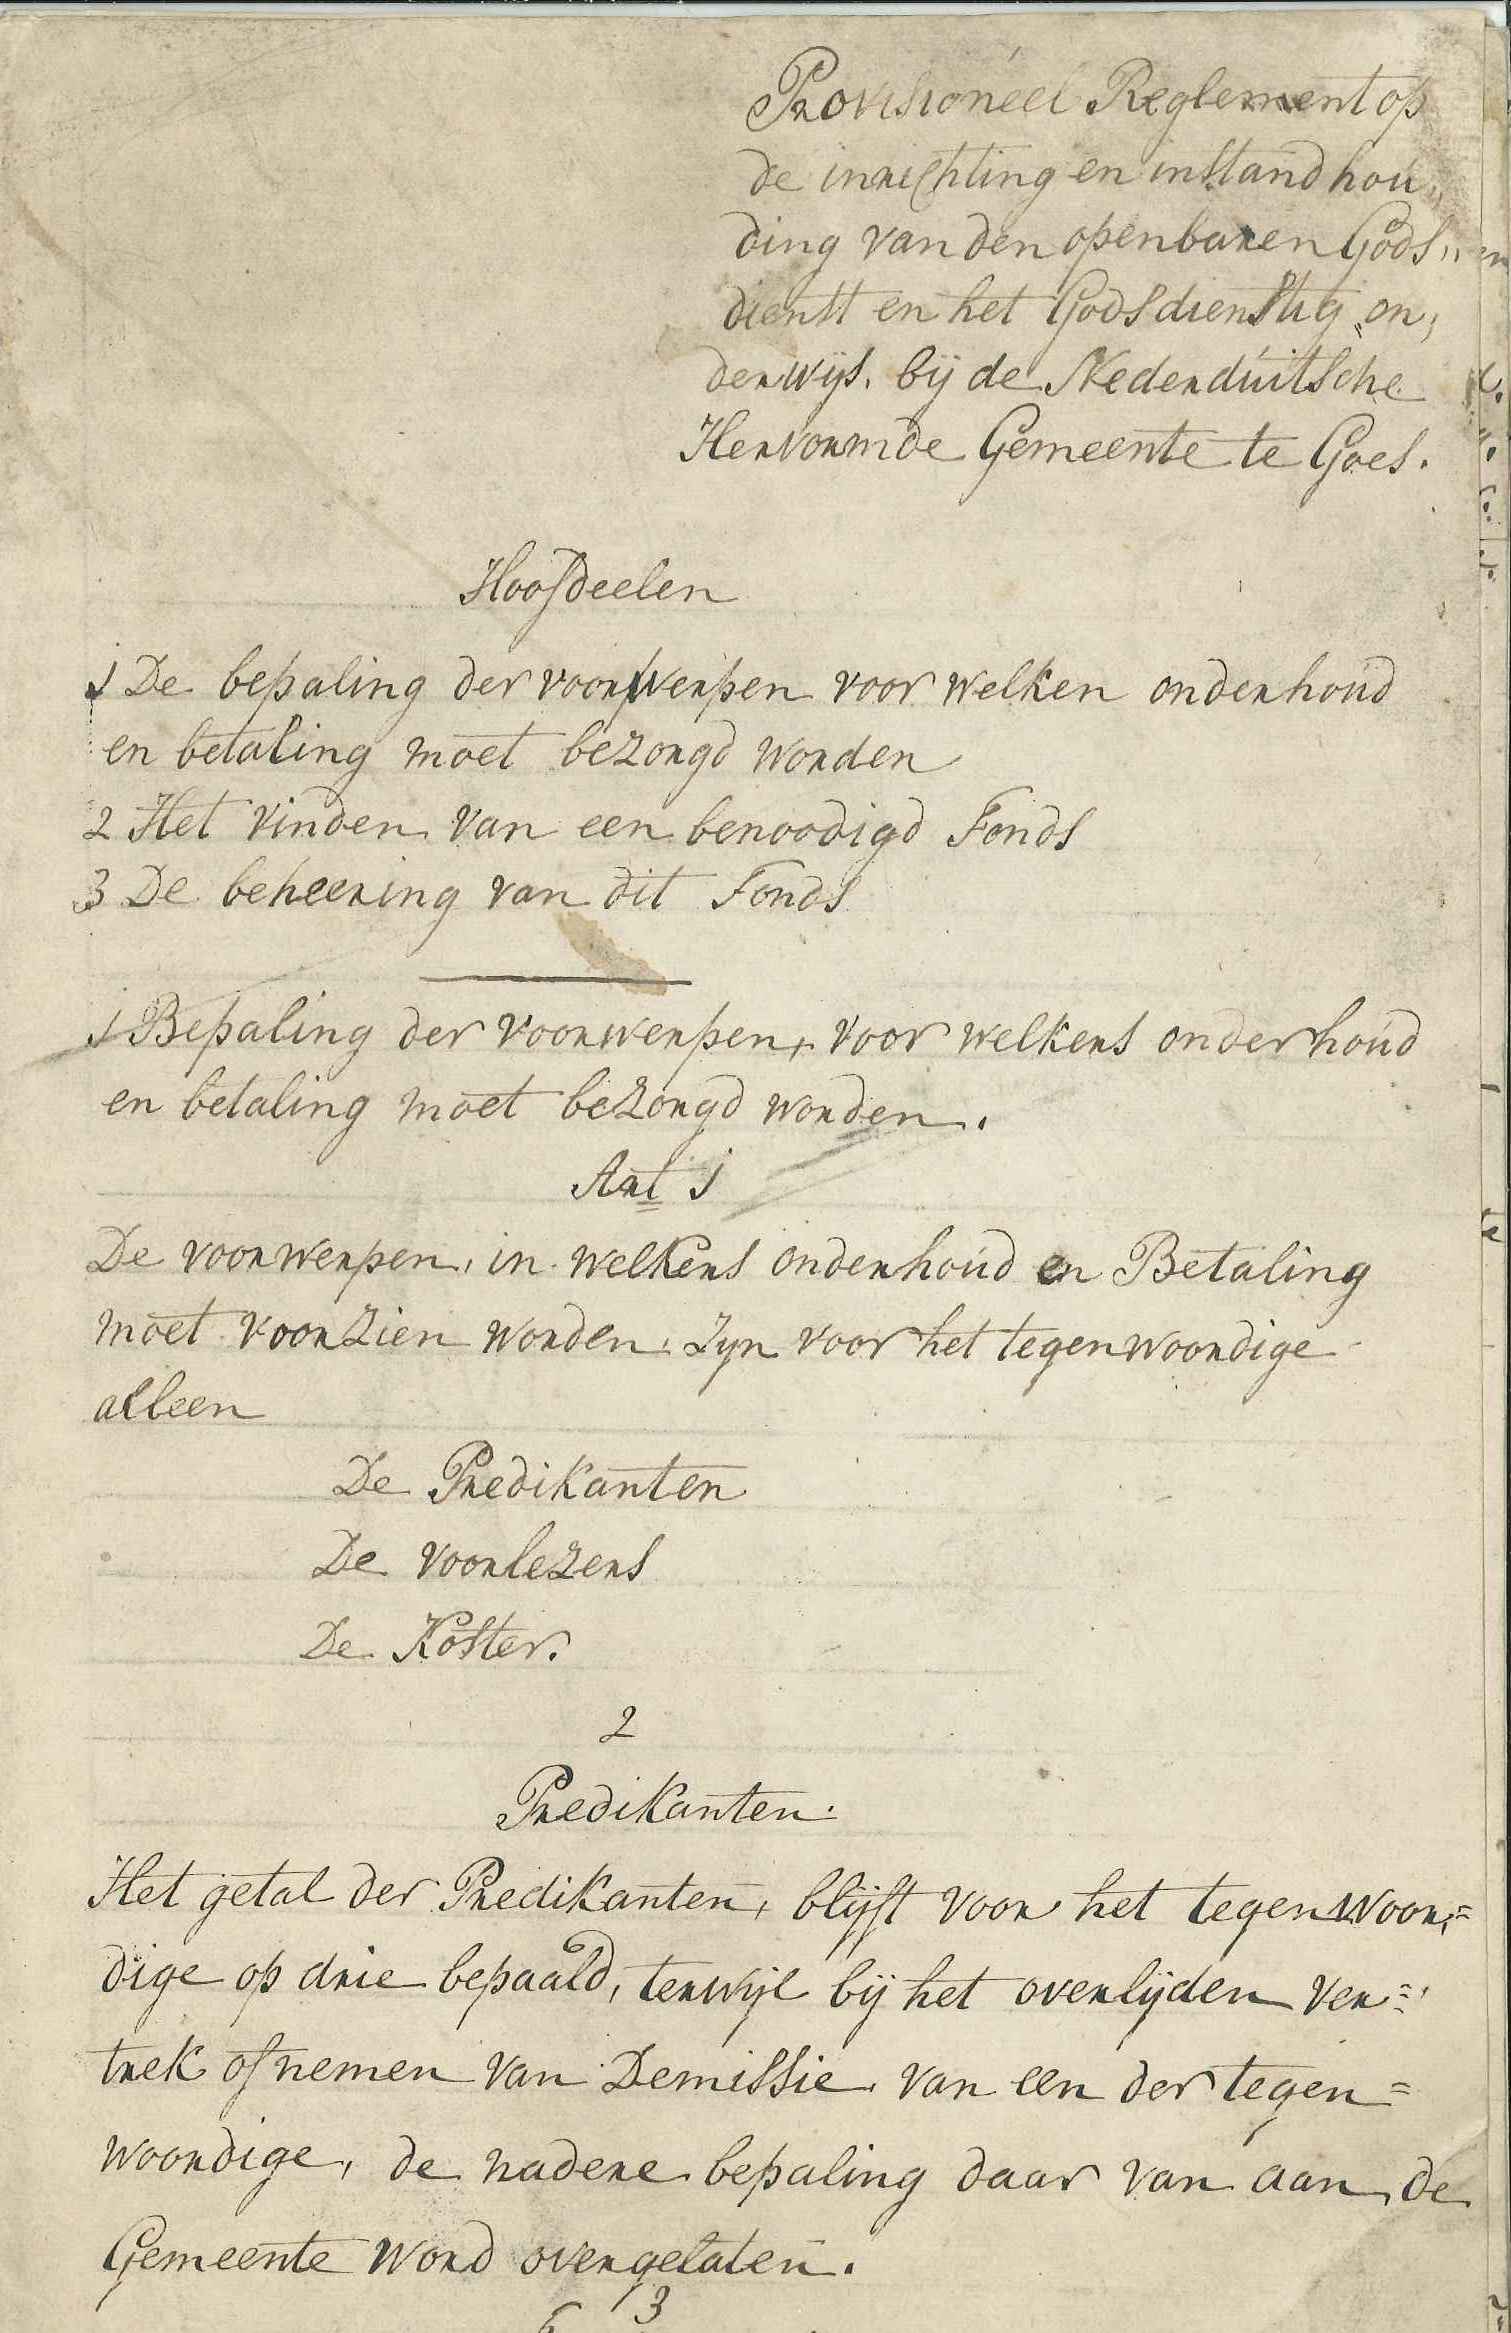 Provisioneel Reglement op
de inrichting en instandhou,,
ding van den openbaren Gods,,
dienst en het Godsdienstig on,,
derwijs, bij de Nederduitsche
Hervormde Gemeente te Goes.
Hoofdeelen
1 De bepaling der voorwerpen voor welken onderhoud
en betaling moet bezorgd worden
2 Het vinden van een benoodigd Fonds
3 De beheering van dit Fonds
1 Bepaling der voorwerpen, voor welkers onderhoud
en betaling moet bezorgd worden.
Art 1
De voorwerpen, in welkers onderhoud en Betaling
moet voorzien worden, zyn voor het tegenwoordige
alleen
De Predikanten
De voorlezers
De Koster.
2
Predikanten.
Het getal der Predikanten, blijft voor het tegenwoor,=
dige op drie bepaald, terwijl bij het overlijden ver=
trek of nemen van Demissie, van een der tegen=
woordige, de nadere bepaling daar van aan de
Gemeente word overgelaten.
3